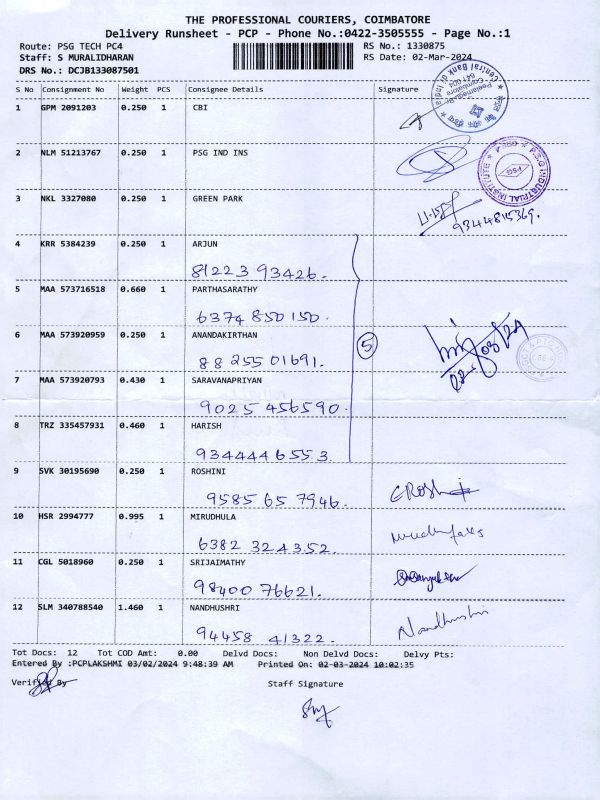 THE PROFESSIONAL COURIERS, COIMBATORE
Delivery Runsheet - PCP - Phone No.:0422-3505555 - Page No.:1
Route: PSG TECH PC4 RS No.: 1330875
Staff: S MURALIDHARAN RS Date: 02-Mar-2024
DRS No.: DCJB133087501
S No Consignment No Weight PCS Consignee Details Signature
1 GPM 2091203 0.250 1 CBI
Central Bank of India
Peelamedu Br.
Coimbatore
641 004
2 NLM 51213767 0.250 1 PSG IND INS
P.S.G. INDUSTRIAL INSTITUTE
PSG
3 NKL 3327080 0.250 1 GREEN PARK
9344815369.
4 KRR 5384239 0.250 1 ARJUN
81223 93426.
5 MAA 573716518 0.660 1 PARTHASARATHY
6374 850 150.
6 MAA 573920959 0.250 1 ANANDAKIRTHAN
88 255 01691.
5
02-03/24
7 MAA 573920793 0.430 1 SARAVANAPRIYAN
9025 456590.
8 TRZ 335457931 0.460 1 HARISH
934444 6553.
9 SVK 30195690 0.250 1 ROSHINI
9585 65 7946.
10 HSR 2994777 0.995 1 MIRUDHULA
6382 324352.
11 CGL 5018960 0.250 1 SRIJAIMATHY
98400 76621.
12 SLM 340788540 1.460 1 NANDHUSHRI
94458 41322.
Nandhushri
Tot Docs: 12 Tot COD Amt: 0.00 Delvd Docs: Non Delvd Docs: Delvy Pts:
Entered By :PCPLAKSHMI 03/02/2024 9:48:39 AM Printed On: 02-03-2024 10:02:35
Verified By Staff Signature